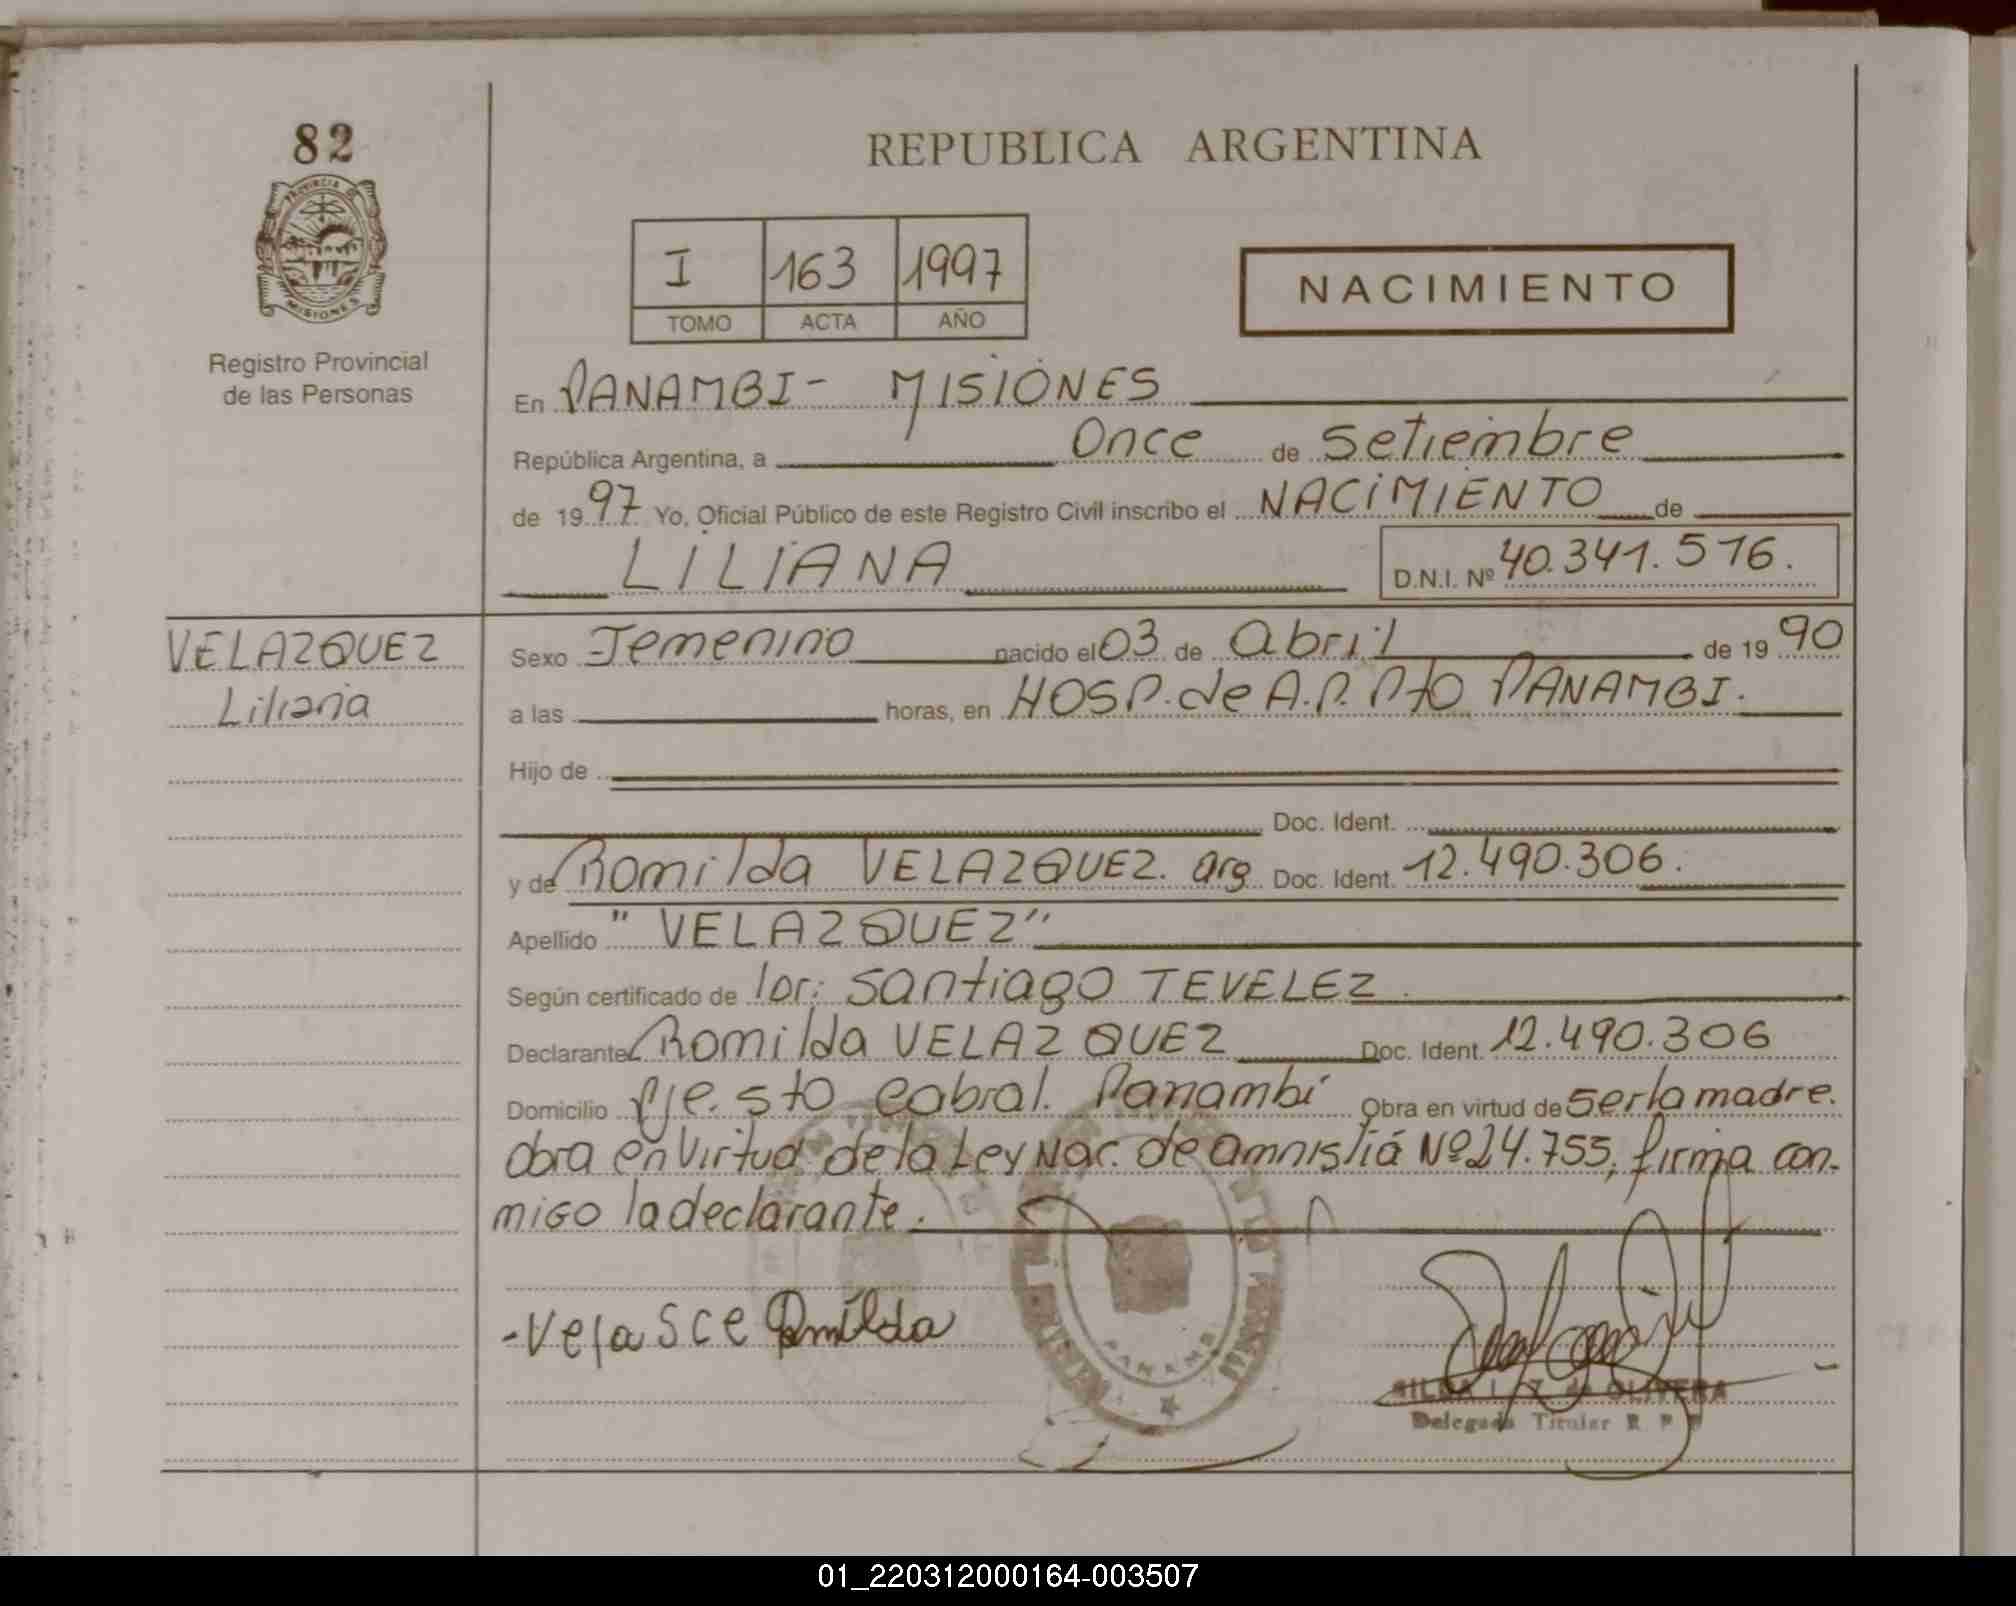 82
PROVINCIA DE
MISIONES
Registro Provincial
de las Personas
REPUBLICA ARGENTINA
I 163 1997
TOMO ACTA AÑO
NACIMIENTO
En PANAMBI- MISIONES
República Argentina, a Once de Setiembre
de 1997 Yo, Oficial Público de este Registro Civil inscribo el NACIMIENTO de
LILIANA D.N.I. Nº 40.341.516.
VELAZQUEZ
Liliana
Sexo Femenino nacido el 03 de Abril de 1990
a las horas, en HOSP. de A.P. Pto PANAMBI.
Hijo de
Doc. Ident.
y de Romilda VELAZQUEZ. arg Doc. Ident. 12.490.306.
Apellido "VELAZQUEZ"
Según certificado de Santiago TEVELEZ
Declarante Romilda VELAZQUEZ Doc. Ident. 12.490.306
Domicilio Pje. Sto Cabral. Panambí Obra en virtud de ser la madre.
obra en virtud de la Ley Nac. de amnistiá Nº 24.755, firma con-
migo la declarante.
PANAMBI
OLIVERA
Delegada Titular R P P
01_220312000164-003507